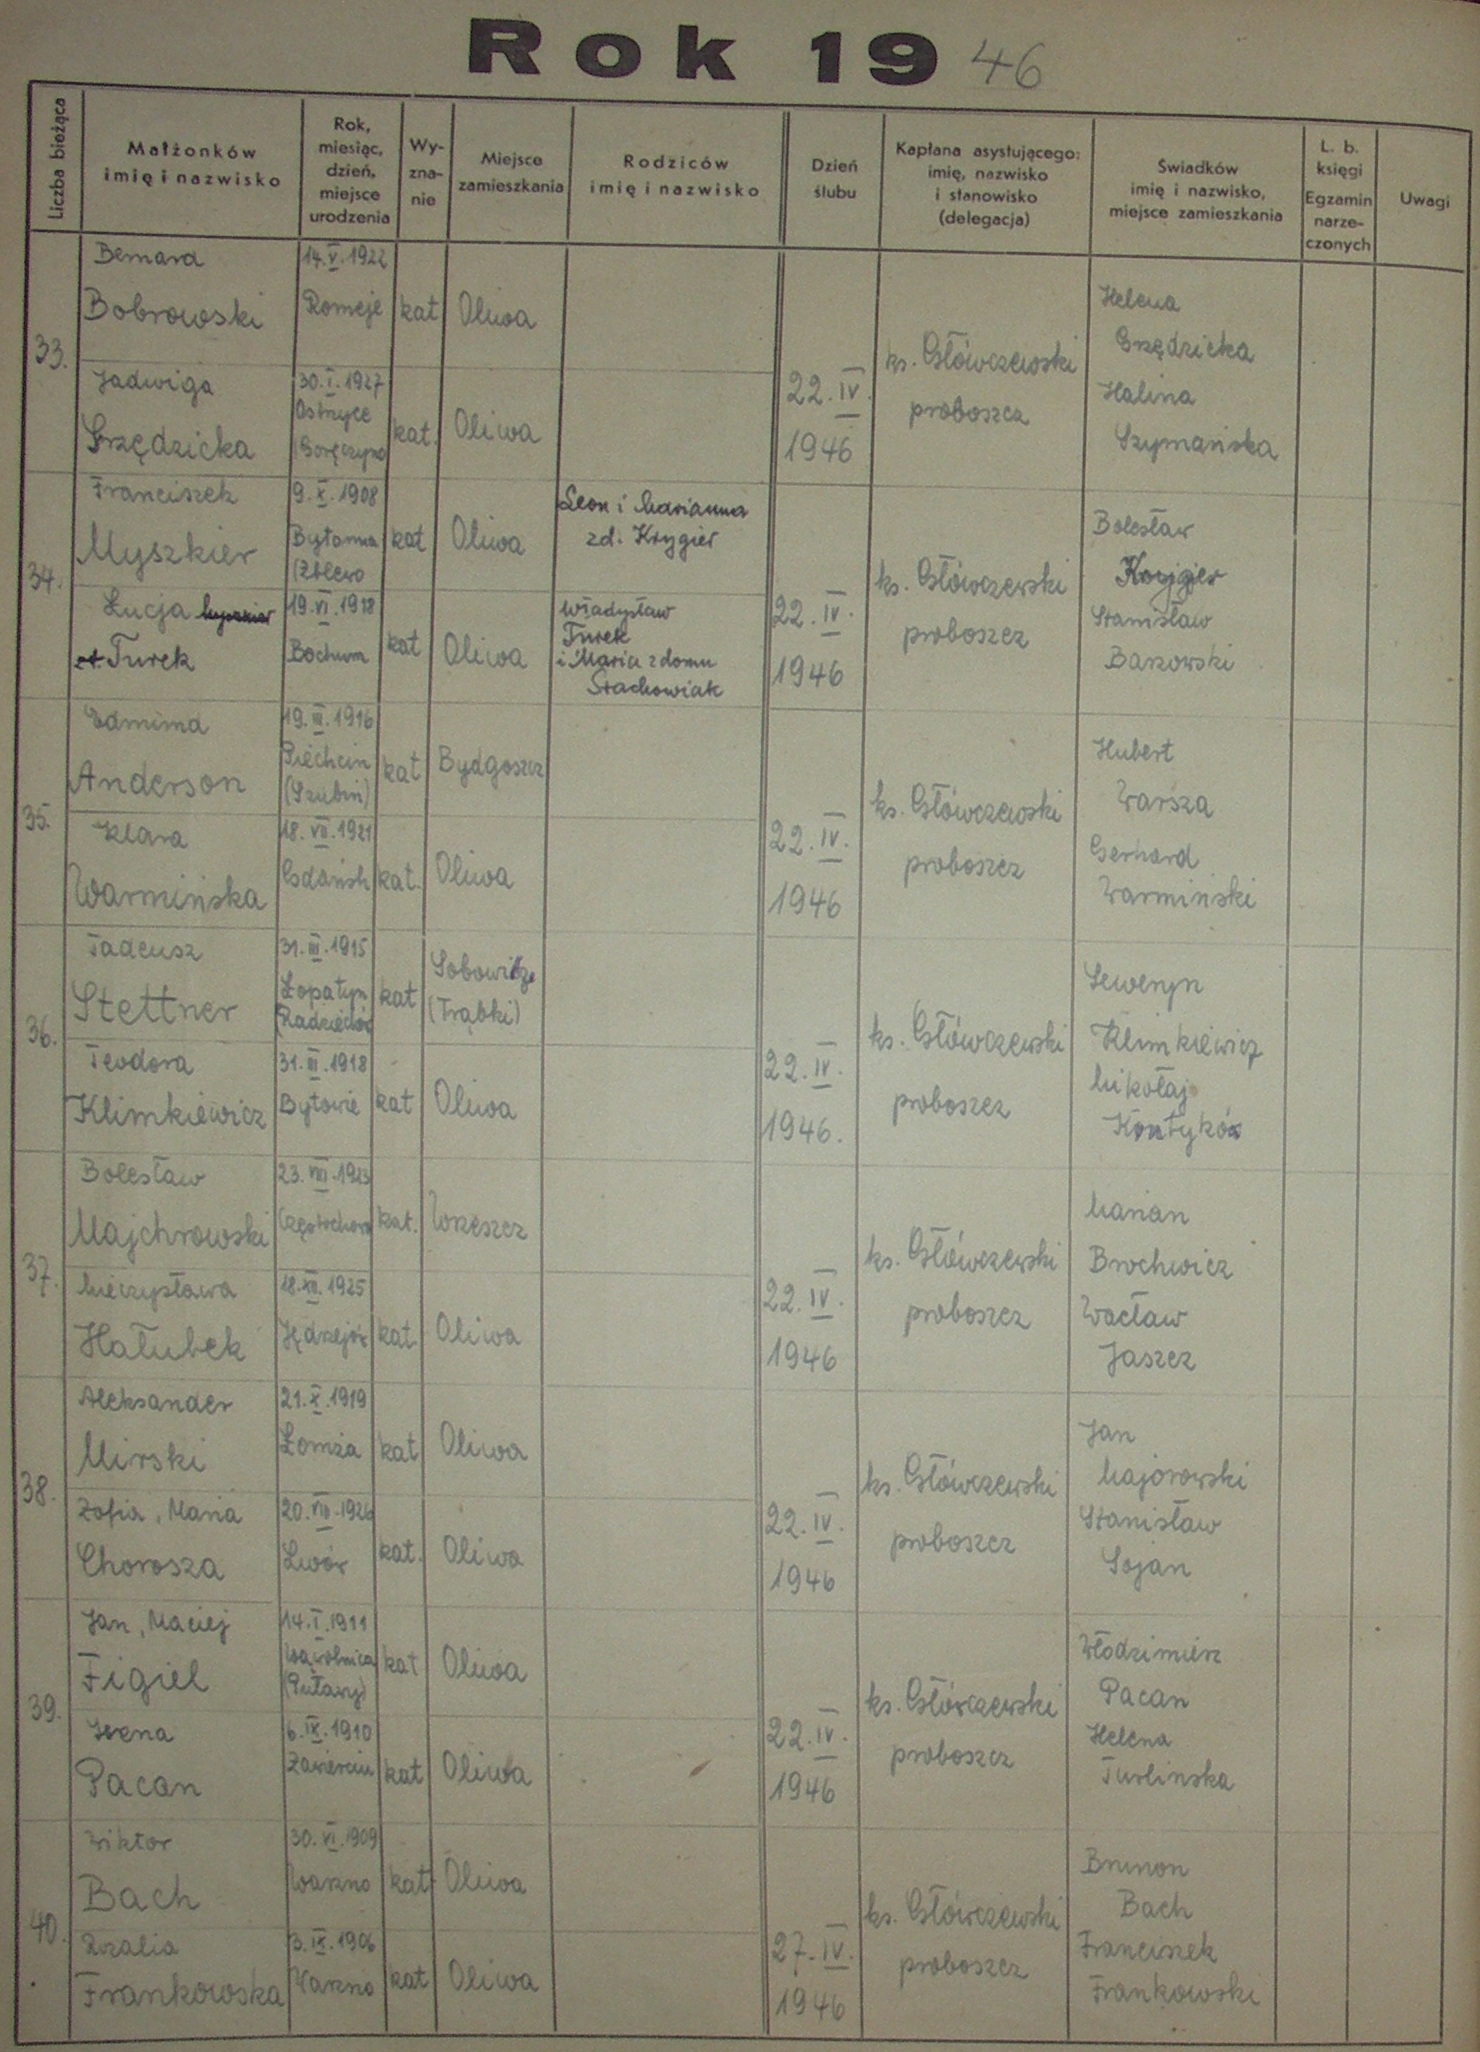 Rok 1946
Liczba bieżąca
Małżonków
imię i nazwisko
Rok,
miesiąc,
dzień,
miejsce
urodzenia
Wy-
zna-
nie
Miejsce
zamieszkania
Rodziców
imię i nazwisko
Dzień
ślubu
Kapłana asystującego:
imię, nazwisko
i stanowisko
(delegacja)
Świadków
imię i nazwisko,
miejsce zamieszkania
L. b.
księgi
Egzamin
narze-
czonych
Uwagi
33.
Bernard
Bobrowski
14.V.1922
kat
Oliwa
Jadwiga
Grzędzicka
30.I.1927
Ostrzyce
kat.
Oliwa
22.IV.
1946
ks. Główczewski
proboszcz
Helena
Grzędzicka
Halina
Szymańska
34.
Franciszek
Myszkier
9.X.1908
Bytonia
(Zblewo
kat
Oliwa
Leon i Marianna
zd. Krygier
Łucja Myszkier
Turek
19.VI.1918
Bochum
kat
Oliwa
Władysław
Turek
i Maria z domu
Stachowiak
22.IV.
1946
ks. Główczewski
proboszcz
Bolesław
Krygier
Stanisław
35.
Edmund
Anderson
19.III.1916
Piechcin
(Szubin)
kat
Bydgoszcz
Klara
Warmińska
18.VII.1921
Gdańsk
kat.
Oliwa
22.IV.
1946
ks. Główczewski
proboszcz
Hubert
Warsza
Gerhard
Warmiński
36.
Tadeusz
Stettner
31.III.1915
Łopatyn
(Radziechów
kat
Sobowidz
(Trąbki)
Teodora
Klimkiewicz
31.III.1918
kat
Oliwa
22.IV.
1946.
ks. Główczewski
proboszcz
Seweryn
Klimkiewicz
Mikołaj
37.
Bolesław
Majchrowski
23.VIII.1923
Częstochowa
kat.
Wrzeszcz
Mieczysława
Hałubek
18.XII.1925
Jędrzejów
kat.
Oliwa
22.IV.
1946
ks. Główczewski
proboszcz
Marian
Brochwicz
Wacław
Jaszcz
38.
Aleksander
Mirski
21.X.1919
Łomża
kat
Oliwa
Zofia, Maria
Chorosza
20.VIII.1926
Lwów
kat.
Oliwa
22.IV.
1946
ks. Główczewski
proboszcz
Jan
Majorowski
Stanisław
Sojan
39.
Jan, Maciej
Figiel
14.I.1911
Wąwolnica
(Puławy)
kat
Oliwa
Irena
Pacan
6.IX.1910
Zawierciu
kat
Oliwa
22.IV.
1946
ks. Główczewski
proboszcz
Włodzimierz
Pacan
Helena
Turlinska
40.
Wiktor
Bach
30.VI.1909
Warzno
kat
Oliwa
Rozalia
Frankowska
3.IX.1906
Warzno
kat
Oliwa
27.IV.
1946
ks. Główczewski
proboszcz
Brunon
Bach
Franciszek
Frankowski